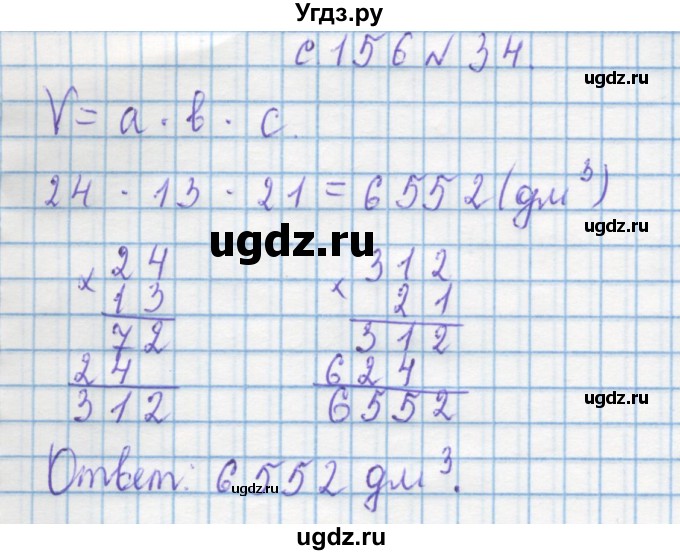 Угдз.ру
с.156 № 34.
ugdz.ru
V = a · b · c.
ugdz.ru
24 · 13 · 21 = 6552 (дм³)
ugdz.ru
ugdz.ru
× 24
13
72
24
312
× 312
21
312
624
6552
ugdz.ru
ugdz.ru
Ответ: 6552 дм³.
ugdz.ru
ugdz.ru
ugdz.ru